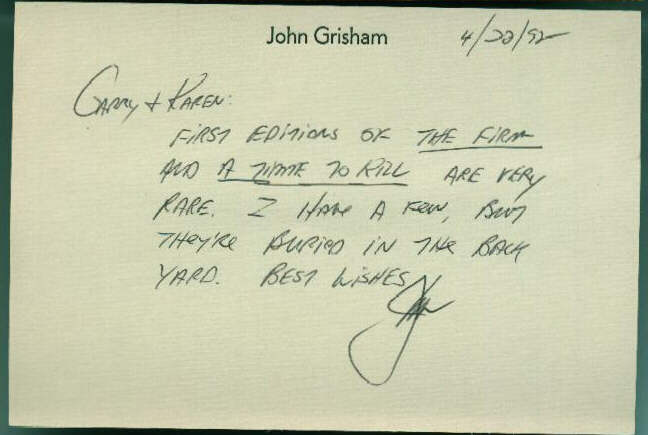 John Grisham
4/22/92
GARRY + KAREN:
FIRST EDITIONS OF THE FIRM
AND A TIME TO KILL ARE VERY
RARE. I HAVE A FEW, BUT
THEY'RE BURIED IN THE BACK
YARD. BEST WISHES
John